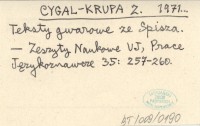 CYGAL-KRUPA Z. 1971.
Teksty gwarowe ze Spisza.
— Zeszyty Naukowe UJ, Prace
Językoznawcze 35: 257-260.